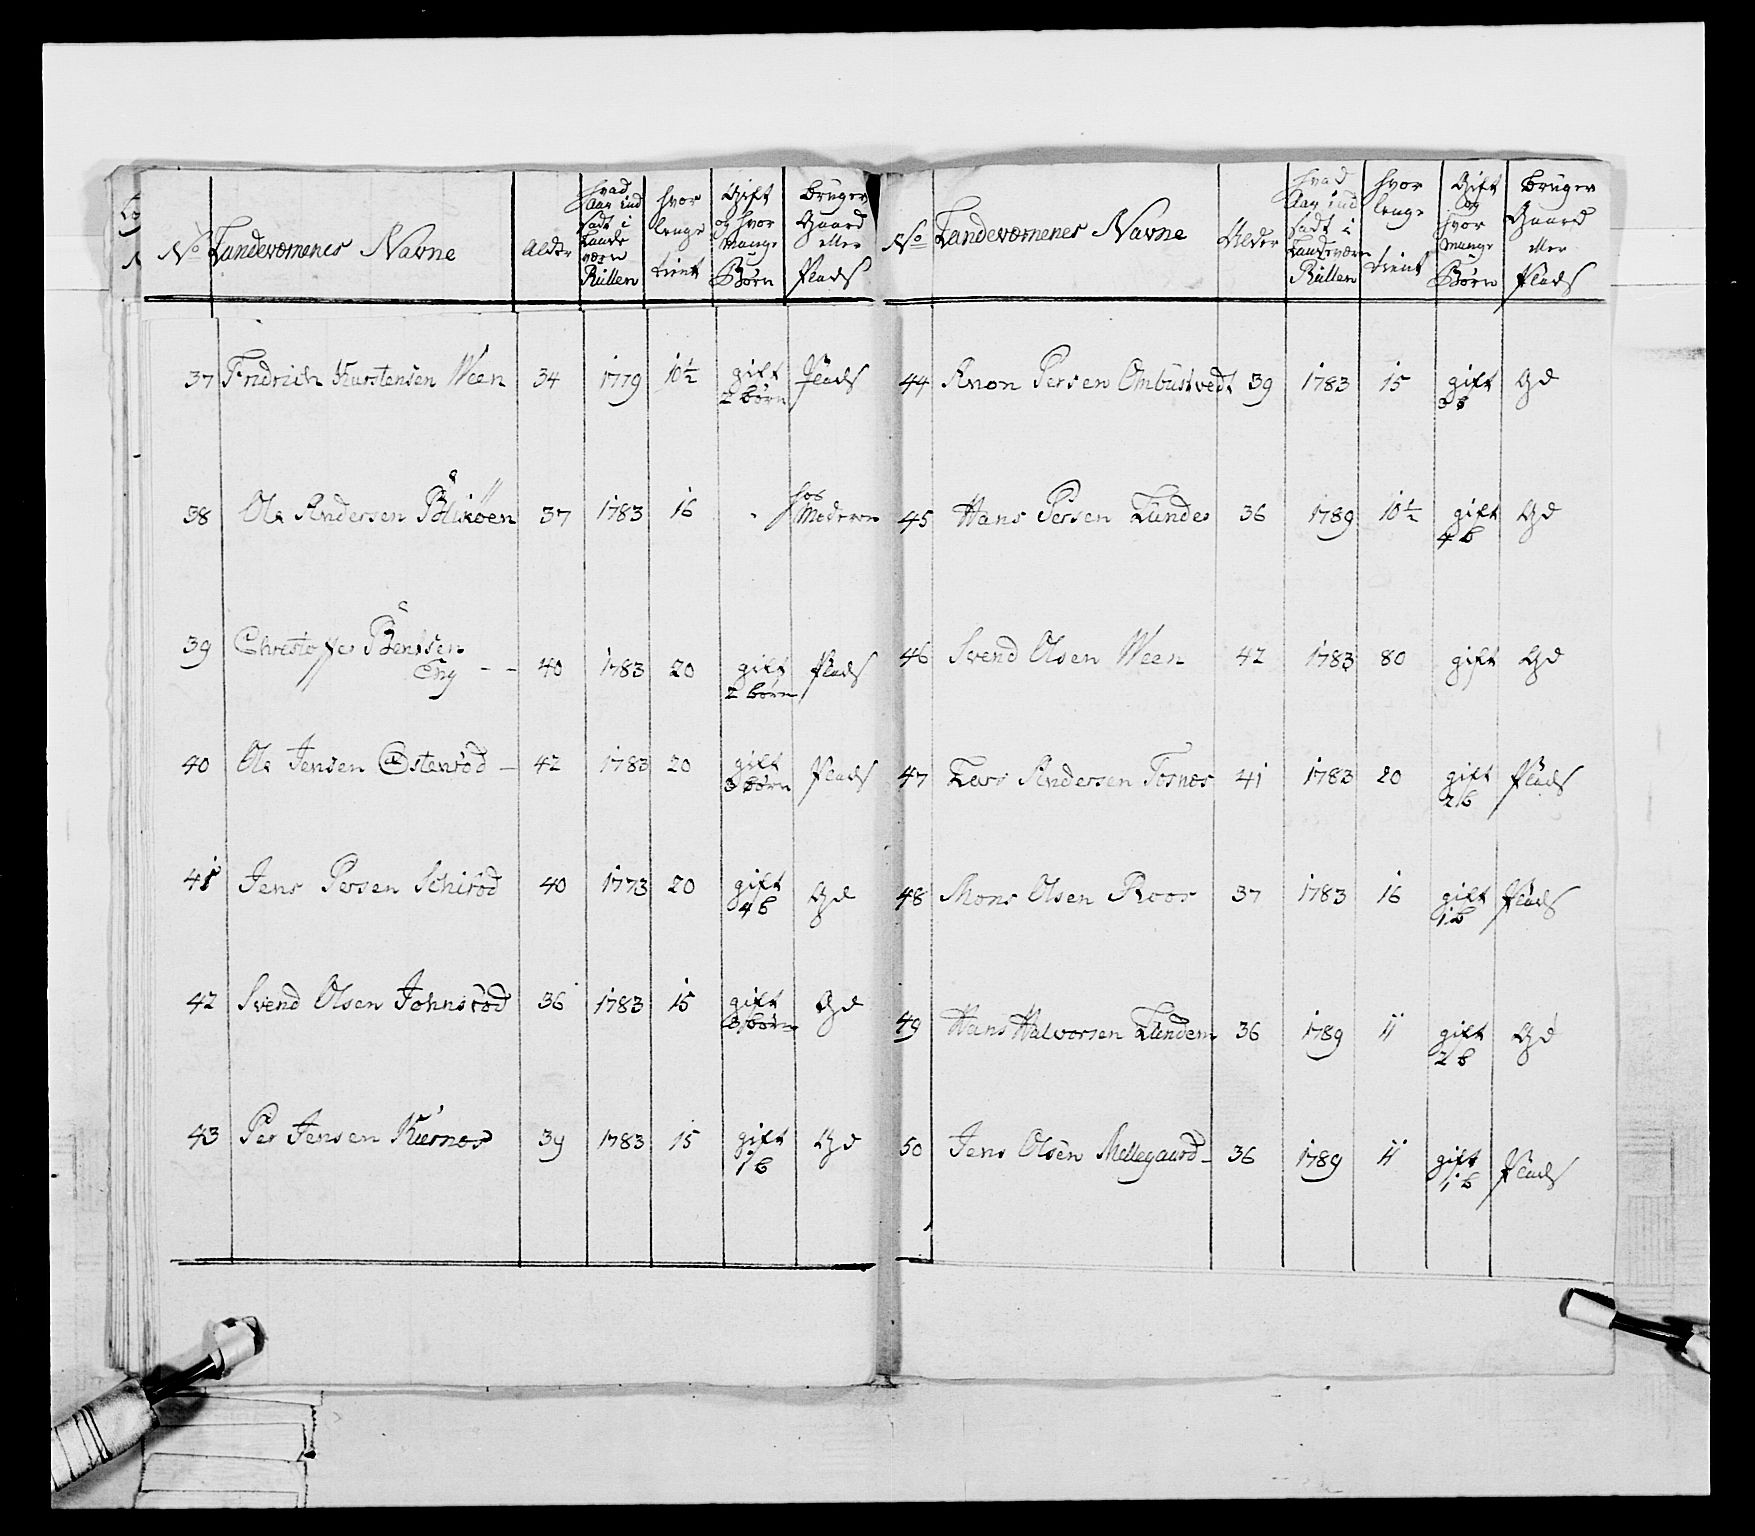 No Landeværnenes Navne Alder hvad Aar ind sadt i Landeværn Rullen hvor lenge tient Gift og hvor mange Børn bruger Gaard eller Plads
37 Fridrich Karstensen Ween 34 1779 10½ gift 2 børn Plads
38 Ole Andersen Blixøen 37 1783 16 - hos Moderen
39 Christoffer Bentsen
Eng - - 40 1783 20 gift 2 børn Plads
40 Ole Jensen Østensöd - 42 1783 20 gift 3 børn Plads
41 Jens Persen Schisöd 40 1773 20 gift 4 b Gd
42 Svend Olsen Johnsröd 36 1783 15 gift 3 børn Gd
43 Per Jensen Kiernes 39 1783 15 gift 1 b Gd
No Landeværnenes Navne Alder hvad Aar ind sadt i Landeværn Rullen hvor lenge tient Gift og hvor mange Børn bruger Gaard eller Plads
44 Anon Persen Ombustvedt 39 1783 15 gift 3 b Gd
45 Hans Persen Lunde 36 1789 10½ gift 4 b Gd
46 Svend Olsen Ween 42 1783 80 gift Gd
47 Lars Andersen Tosnes 41 1783 20 gift 2 b Plads
48 Mons Olsen Roos 37 1783 16 gift 1 b Plads
49 Hans Halvorsen Lundem 36 1789 11 gift 2 b Gd
50 Jens Olsen Mellegaard - 36 1789 11 gift 1 b Plads